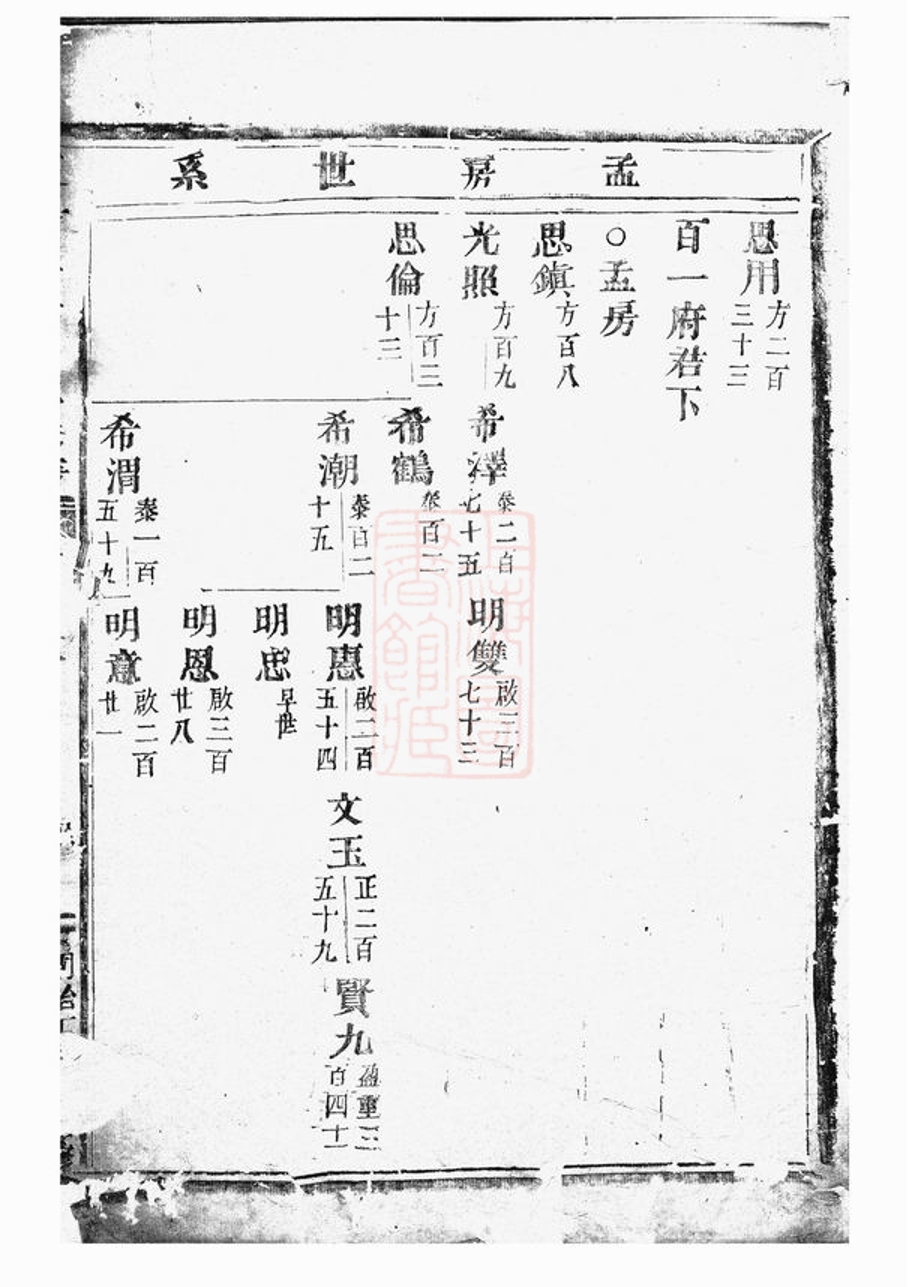 孟房世系
思用 方二百三十三
百一府君下
○孟房
思鎮 方百八
光照 方百九
希澤 泰二百七十五
明雙 啟三百七十三
希鶴 泰百二
思倫 方百三十三
希潮 泰百二十五
明憲 啟二百五十四
文玉 正二百五十九
賢九 盈重三百四十一
明忠 早世
明恩 啟三百廿八
希渭 泰一百五十九
明意 啟二百廿一